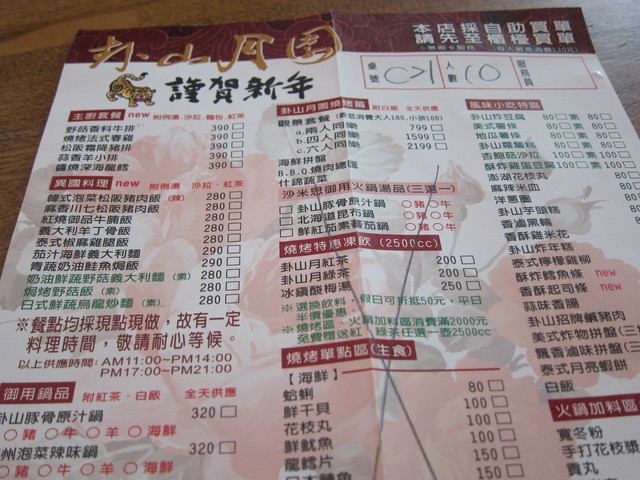 卦山月圓
謹賀新年
本店採自助買單
請先至櫃檯買單
桌號 C21 人數 10 服務員
主廚套餐 new 附例湯、沙拉、麵包、紅茶
野菇香料牛排 390 □
燒烤法式春雞 390 □
松阪霜降豬排 390 □
蒜香羊小排 390 □
醬燒深海龍鱈 390 □
異國料理 new 附例湯、沙拉、紅茶
韓式泡菜松阪豬肉飯 (辣) 280 □
麻香川七松阪豬肉飯 280 □
紅燒御品牛腩飯 280 □
義大利羊丁骨飯 280 □
泰式椒麻雞腿飯 280 □
茄汁海鮮義大利麵 280 □
青蔬奶油鮭魚焗飯 290 □
奶油鮮蔬野菇義大利麵 (素) 280 □
焗烤野菇飯 (素) 280 □
日式鮮蔬烏龍炒麵 (素) 280 □
※餐點均採現點現做，故有一定
料理時間，敬請耐心等候。
以上供應時間: AM11:00~PM14:00
PM17:00~PM21:00
御用鍋品 附紅茶、白飯 全天供應
卦山豚骨原汁鍋 320 □
○豬 ○牛 ○羊 ○海鮮
州泡菜辣味鍋 320 □
○豬 ○牛 ○羊 ○海鮮
卦山月圓燒烤鍋 附白飯 全天供應
觀景套餐 (最低消費大人180,小孩100)
a.兩人同樂 799 □
b.四人同樂 1599 □
c.六人同樂 2199 □
海鮮拼盤
B.B.Q.燒肉總匯
什錦蔬菜
沙米思御用火鍋湯品(三選一)
□ 卦山豚骨原汁鍋 ○豬○牛
□ 北海道昆布鍋 ○豬○牛
□ 鮮紅茄素蕃茄鍋 ○豬○牛
燒烤特惠凍飲 (2500cc)
卦山月紅茶 200 □
卦山月綠茶 200 □
冰鎮酸梅湯 250 □
※選換飲料，假日可折抵50元，平日
半價優惠
※燒烤區、火鍋加料區消費滿2000元
免費贈送紅、綠茶任選一壺2500cc
燒烤單點區(主食)
【海鮮】
蛤蜊 80 □
鮮干貝 100 □
花枝丸 100 □
鮮魷魚 100 □
龍鱈片 150 □
風味小吃特區
卦山炸豆腐 80 □ 素 80 □
美式薯條 80 □ 素 80 □
地瓜薯條 80 □ 素 80 □
卦山蘿蔔糕 80 □ 素 80 □
杏鮑菇沙拉 100 □ 素 100 □
酥炸雞蛋豆腐 100 □ 素 100 □
澎湖花枝丸
麻辣米血
洋蔥圈
卦山芋頭糕
香滷黑輪
香酥雞米花
卦山炸年糕
泰式檸檬雞柳
酥炸鱈魚條 new
香酥起司條 new
蒜味香腸
卦山招牌鹹豬肉
美式炸物拼盤(三
飄香滷味拼盤(三
泰式月亮蝦餅
白飯
火鍋加料區
寬冬粉
手打花枝漿
貢丸